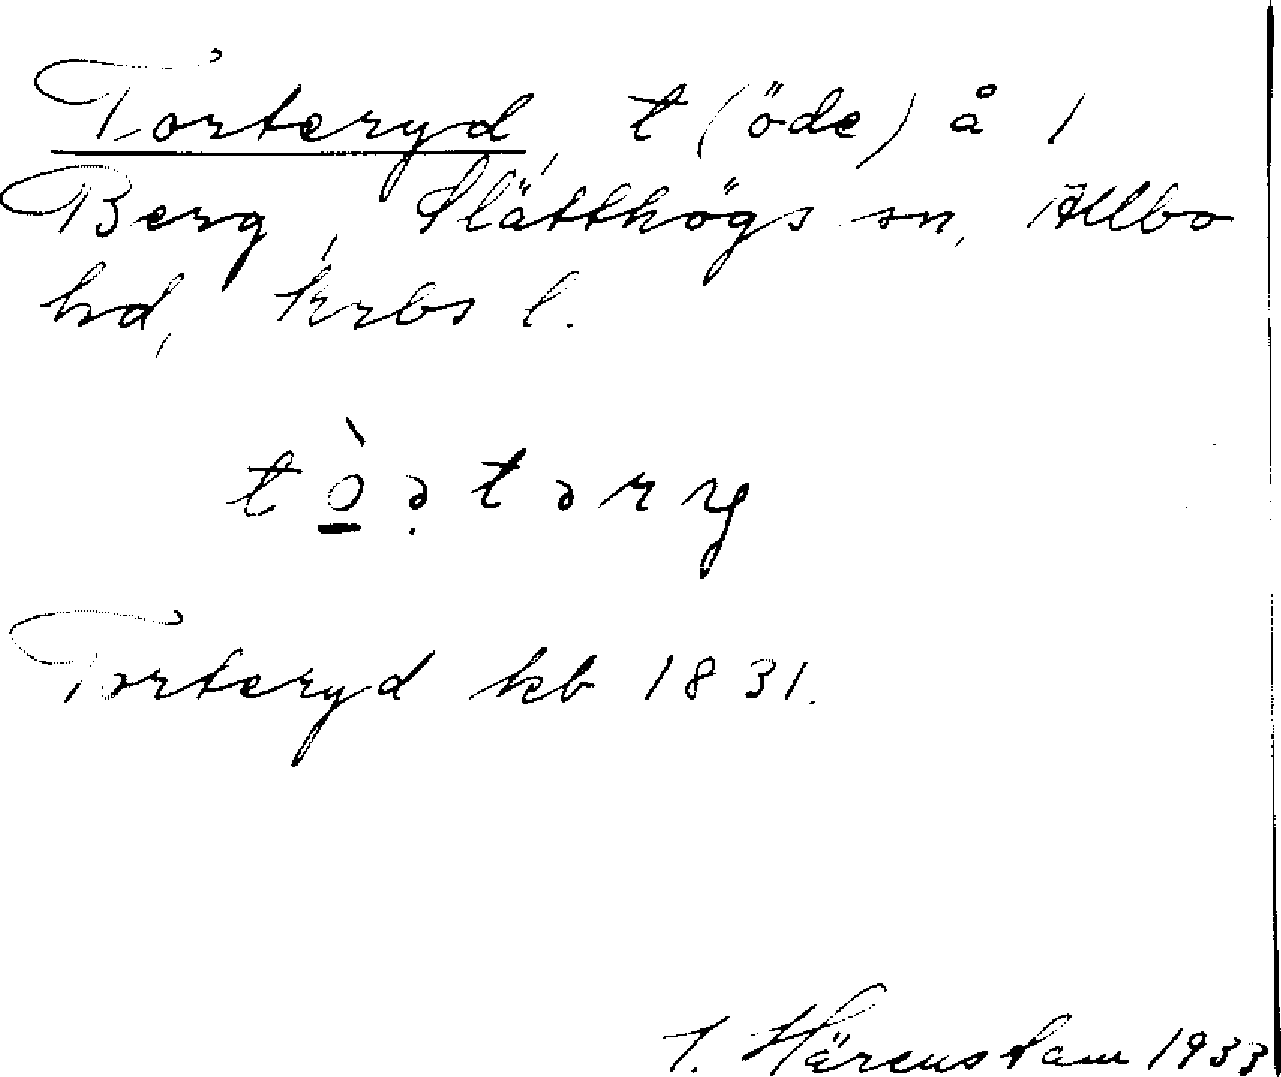 Torteryd, t (öde) å 1
Berg, Slätthögs sn, Allbo
hd, Krbs l.
tò̱ə̣təry
Torteryd kb 1831.
J. Härenstam 1933